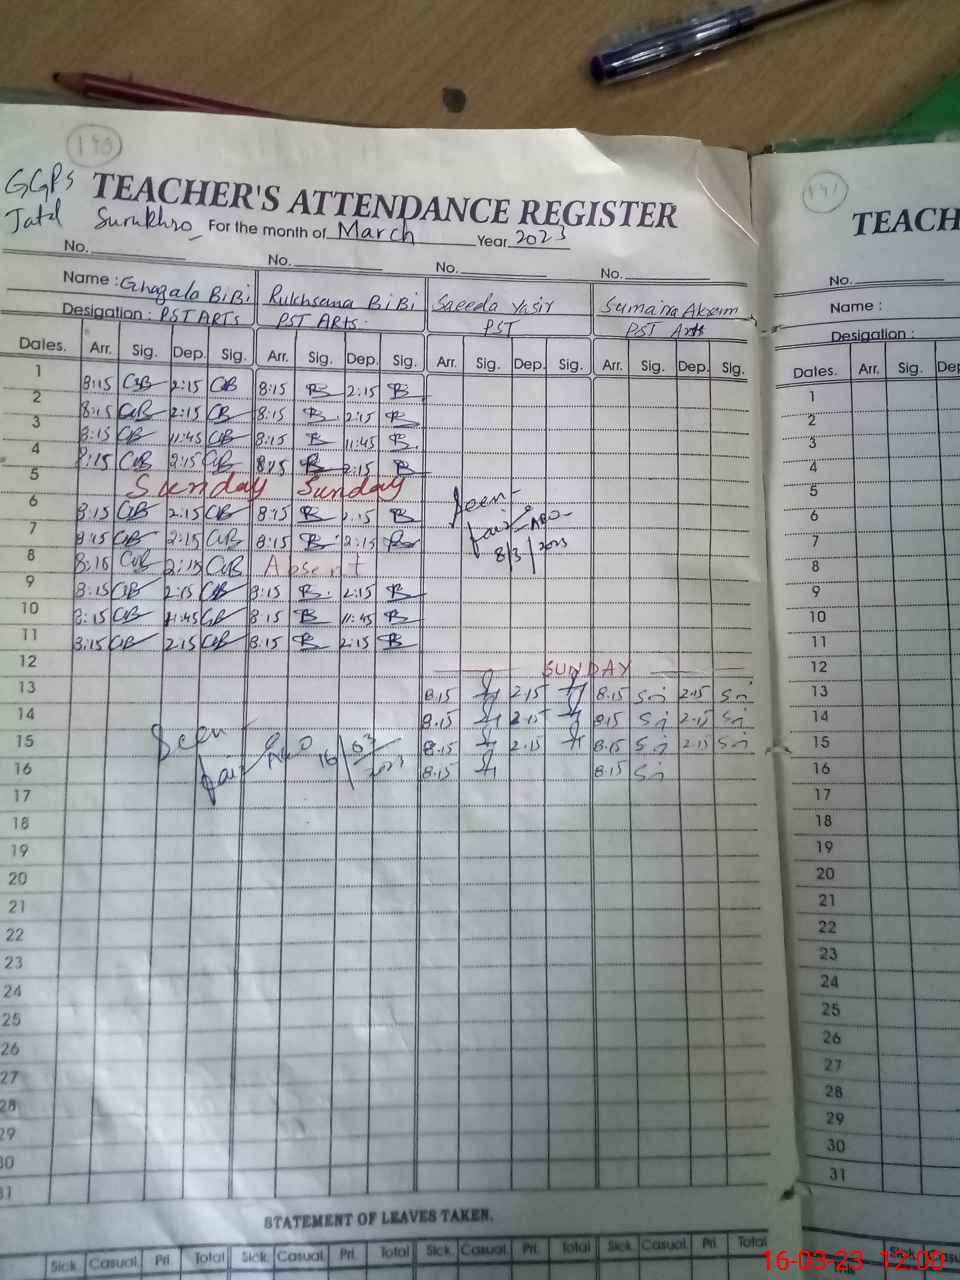 190
GGPS TEACHER'S ATTENDANCE REGISTER
Jatal Surukhro For the month of March Year 2023
No. No. No. No.
Name : Ghazala BiBi Rukhsana BiBi Saeeda Yasir Sumaira Akram
Designation : PST ARTS PST ARTS. PST PST Arts
Dates. Arr. Sig. Dep. Sig. Arr. Sig. Dep. Sig. Arr. Sig. Dep. Sig. Arr. Sig. Dep. Sig.
1 8:15 GB 2:15 GB 8:15 B 2:15 B
2 8:15 GB 2:15 GB 8:15 B 2:15 B
3 8:15 GB 11:45 GB 8:15 B 11:45 B
4 8:15 GB 2:15 GB 8:15 B 2:15 B
5 Sunday Sunday
6 8:15 GB 2:15 GB 8:15 B 2:15 B
7 8:15 GB 2:15 GB 8:15 B 2:15 B
8 8:15 GB 2:15 GB Absent
9 8:15 GB 2:15 GB 8:15 B 2:15 B
10 8:15 GB 11:45 GB 8:15 B 11:45 B
11 8:15 GB 2:15 GB 8:15 B 2:15 B
Seen
AEO
8/3/2023
12 SUNDAY
13 8.15 2.15 8.15 Sri 2.15 Sri
14 8.15 2.15 8.15 Sri 2.15 Sri
15 8.15 2.15 8.15 Sri 2.15 Sri
16 8.15 8.15 Sri
Seen
AEO 16/03/2023
17
18
19
20
21
22
23
24
25
26
27
28
29
30
31
STATEMENT OF LEAVES TAKEN.
Sick. Casual. Pri. Total Sick. Casual. Pri. Total Sick. Casual. Pri. Total Sick. Casual. Pri. Total
191
TEACH
No.
Name :
Desigation :
Dates. Arr. Sig. Dep
1
2
3
4
5
6
7
8
9
10
11
12
13
14
15
16
17
18
19
20
21
22
23
24
25
26
27
28
29
30
31
16-03-23 12:00